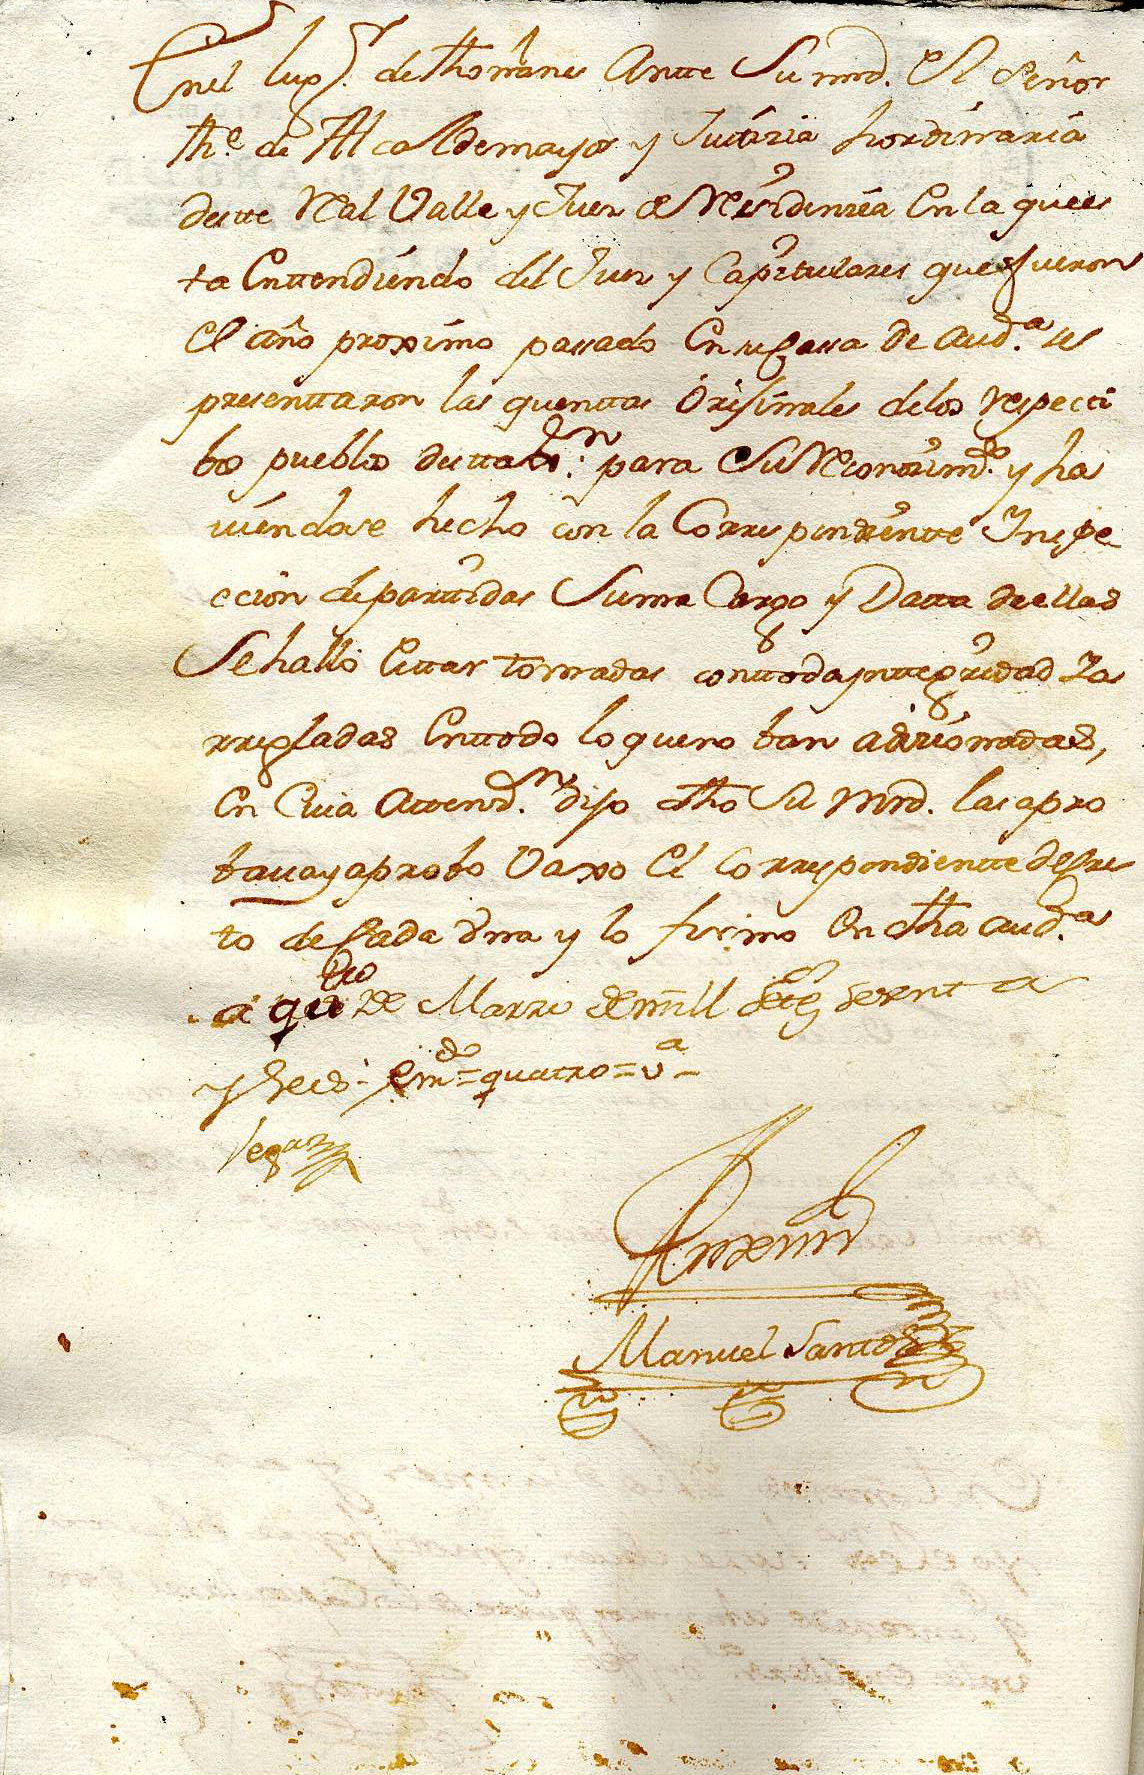 Enel lug.r de thoranes Antte Su mrd. El Señor
the. de Alcaldemayor y Justizia hordinaria
deste Real Valle y Juez de Residenzia En la quees
ta Enttendiendo del Juez y Capitulares quefueron
El año proximo passado En su Cassa de aud.a se
presenttaron las quenttas orijinales delos respecti
bos pueblos desta para Su Reconozim.to y ha
viendose hecho con la Correspondiente Inspe
cción departtidas Suma Cargo y Datta deellas
Sehalló Esttar tomadas conttodaynttegridad Ya
rregladas Enttodo lo queno ban adizionadas,
En Cuia Attenz.on dijo dho Su Mrd. las apro
bavayaprobo Vaxo El correspondiente decre
to de Cada Una y lo firmo En dha aud.a
a quatro de Marzo de mill Settez.s sesentta
y seis - Em.do = quatro = v.a -
Vega
Ante mi
Manuel Santos